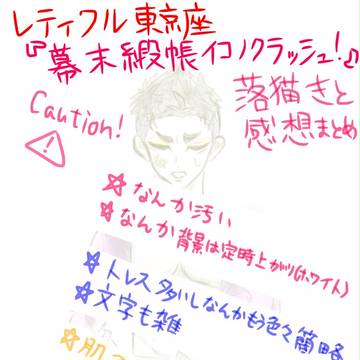 レティクル東京座
『幕末緞帳イコノクラッシュ!』
落描きと
感想まとめ
Caution!
!
☆なんか汚い
☆なんか背景は定時上がり(ホワイト)
☆トレス多いしなんかもう色々簡略
☆文字も雑
☆肌